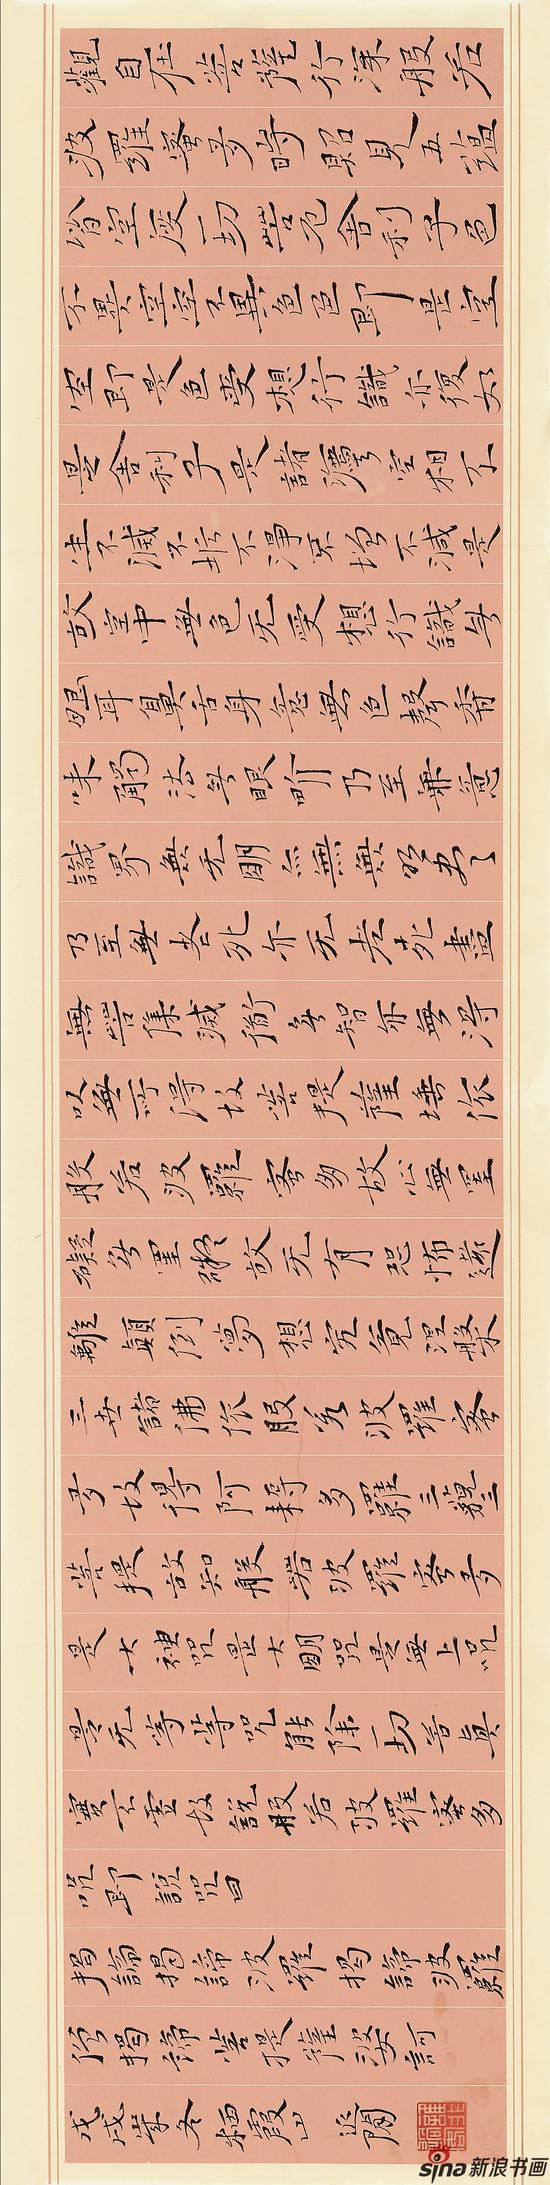 觀自在菩薩行深般若
波羅蜜多時照見五蘊
皆空度一切苦厄舍利子色
不異空空不異色色即是空
空即是色受想行識亦復如
是舍利子是諸法空相不
生不滅不垢不淨不增不減是
故空中無色无受想行識無
眼耳鼻舌身意無色聲香
味觸法無眼界乃至無意
識界無无明亦無無明盡
乃至無老死亦无老死盡
無苦集滅道無智亦無得
以無所得故菩提薩埵依
般若波羅密多故心無罣
礙無罣礙故无有恐怖遠
離顛倒夢想究竟涅槃
三世諸佛依般若波羅密
多故得阿耨多羅三藐三
菩提故知般若波羅密多
是大神咒是大明咒是無上咒
是无等等咒能除一切苦真
實不虛故說般若波羅密多
咒即說咒曰
揭諦揭諦波羅揭諦波羅
僧揭諦菩提薩婆訶
戊戌歲冬栖霞山
sina新浪书画